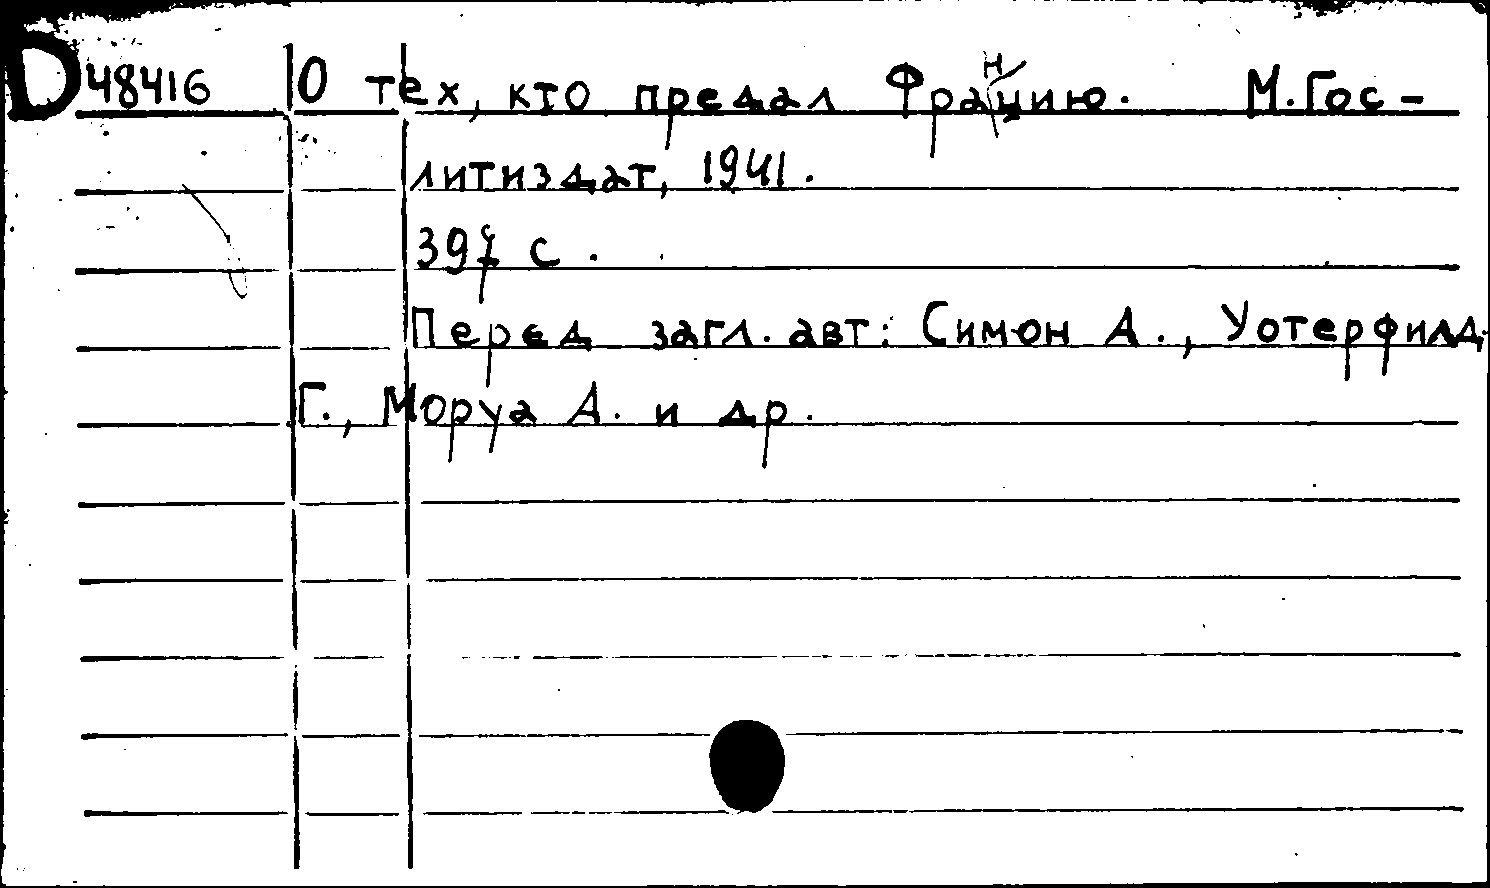 D48416 О тех, кто предал Францию. М.Гос-
литиздат, 1941.
397 с.
Перед загл. авт: Симон А., Уотерфилд
Г., Моруа А. и др.